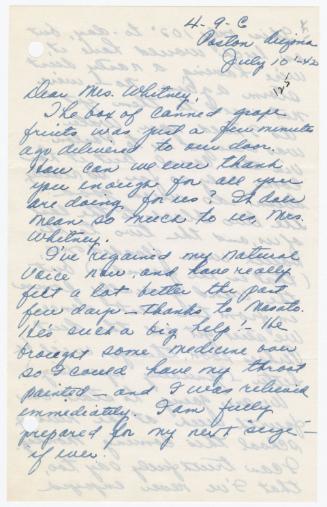 4-9-C
Poston Arizona
July 10 '42
Dear Mrs. Whitney,
The box of canned grape
fruits was just a few minutes
ago delivered to our door.
How can we ever thank
you enough for all you
are doing for us? It does
mean so much to us, Mrs.
Whitney.
I've regained my natural
voice now, and have really
felt a lot better the past
few days — thanks to
He's such a big help! — He
brought some medicine over
so I could have my throat
painted — and I was relieved
immediately. I am fully
prepared for my next siege —
if ever.